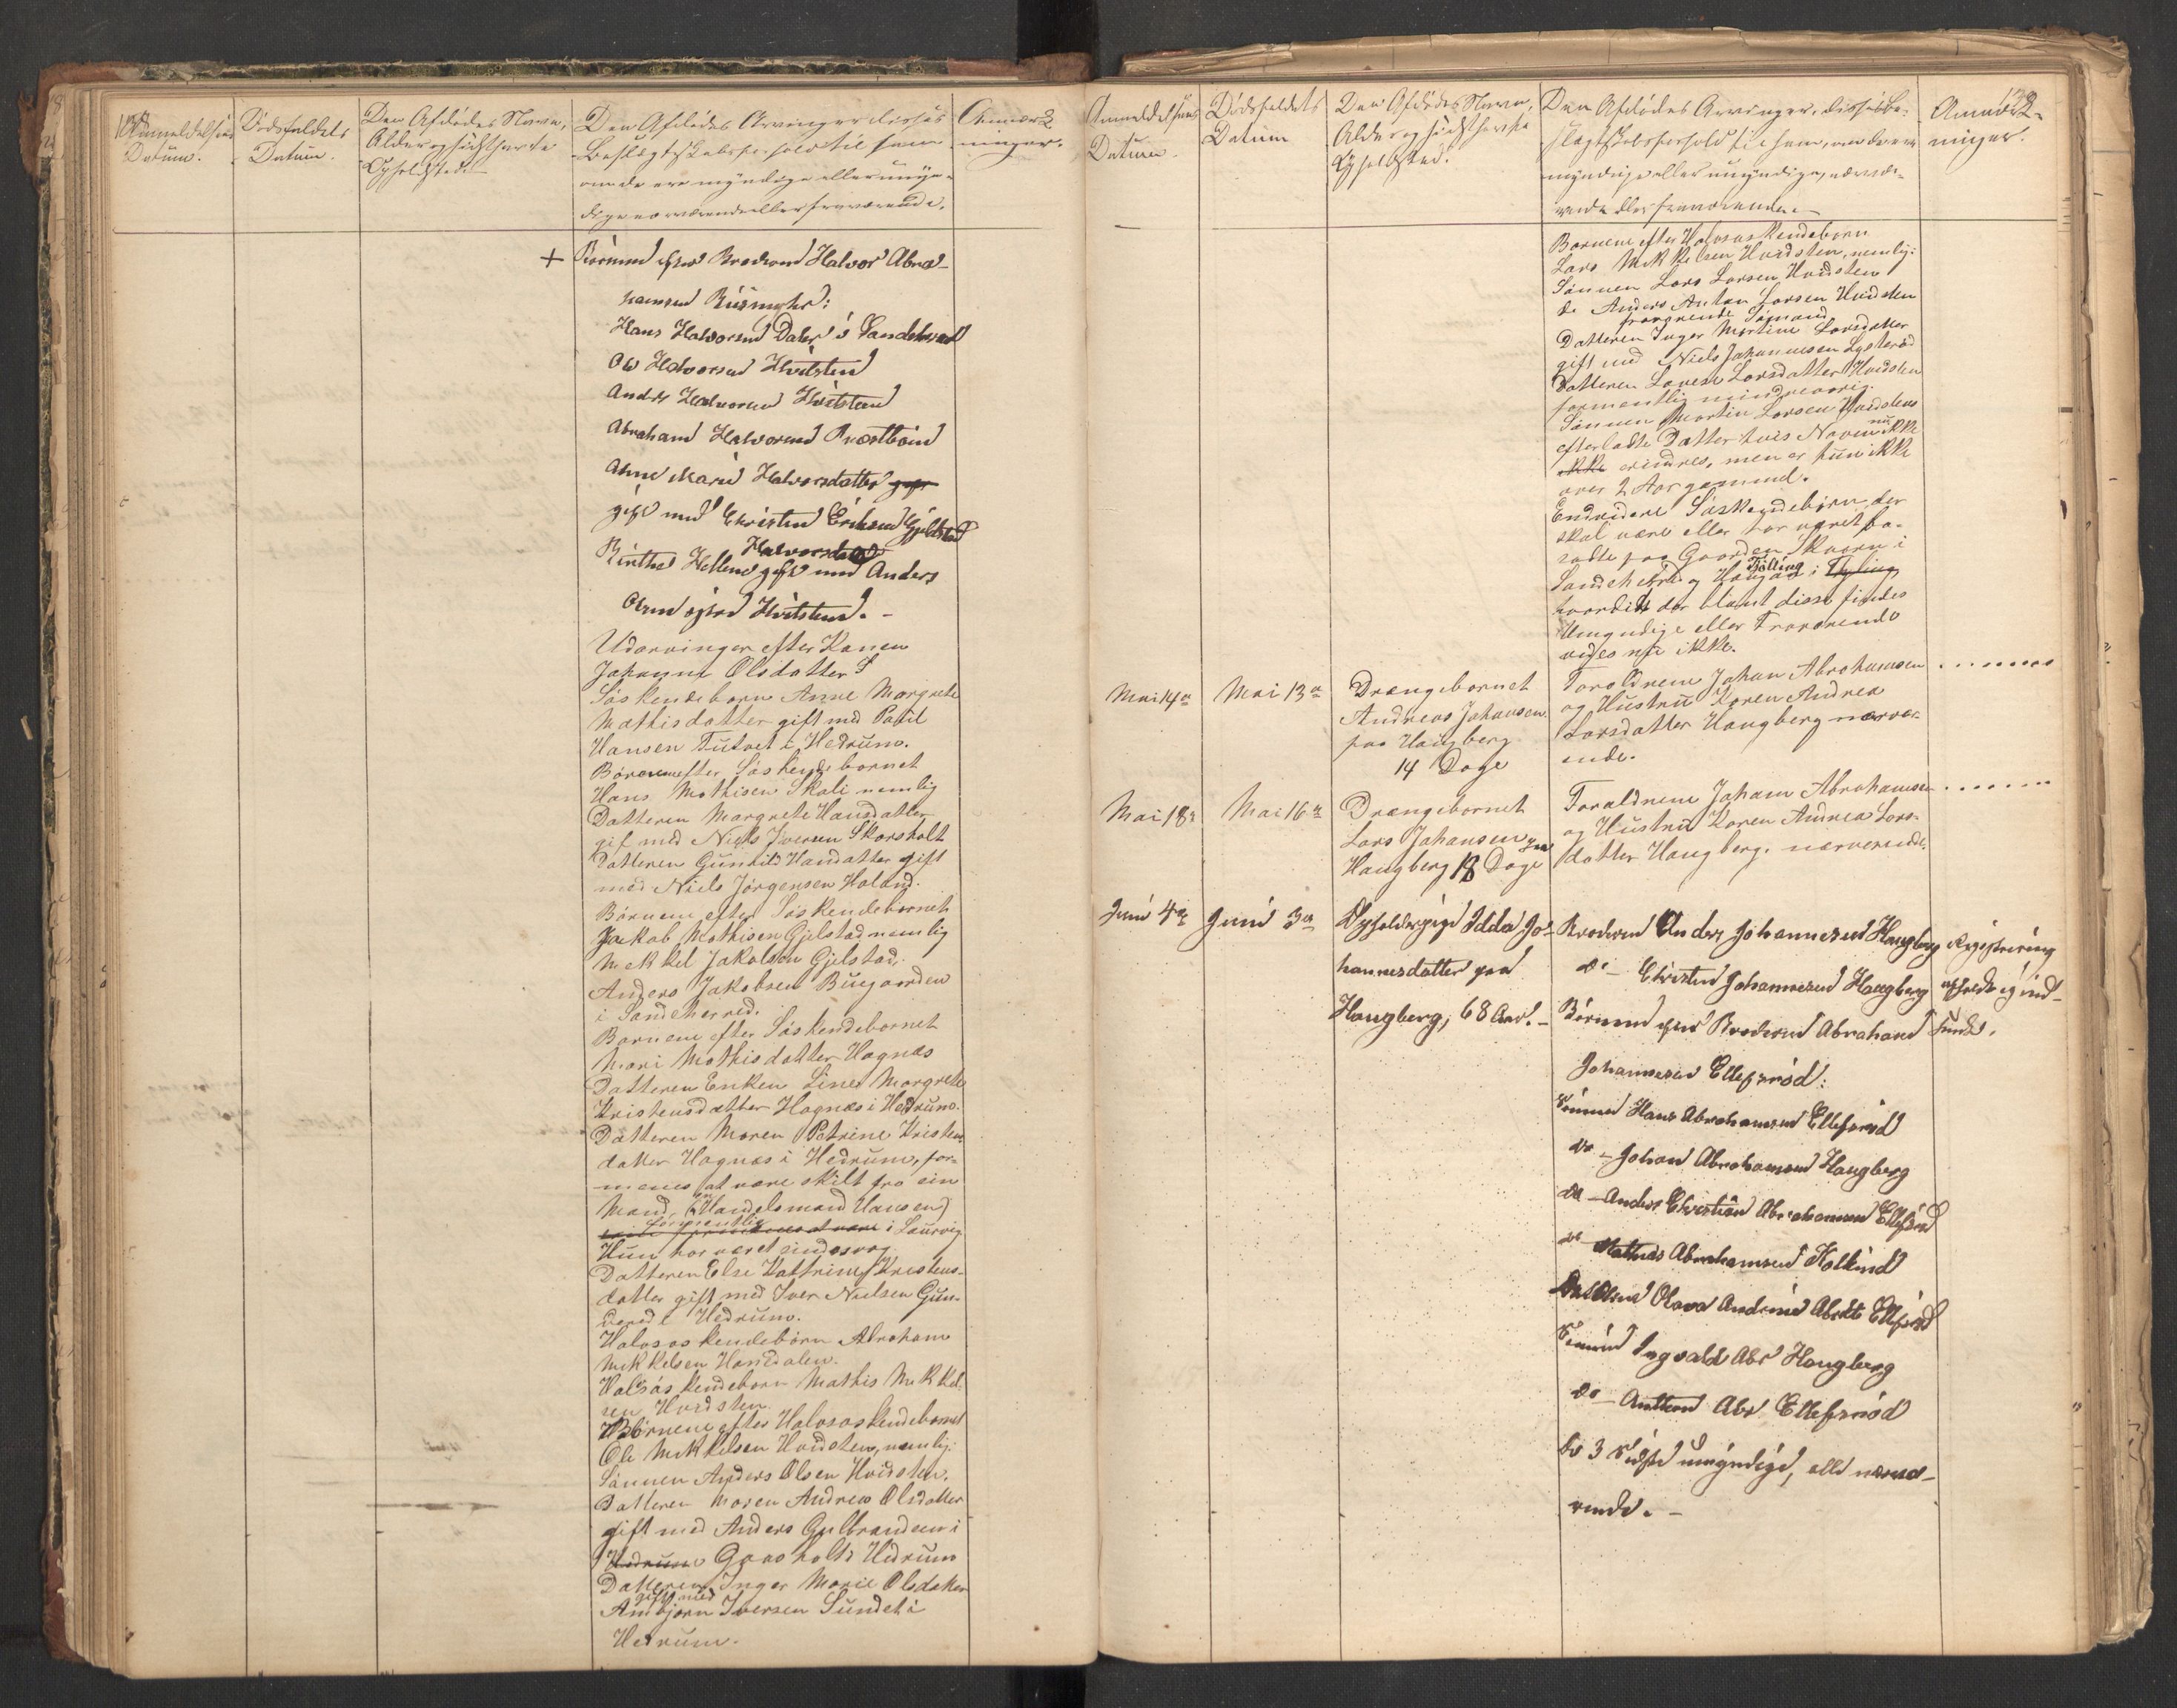 Anmeldelsens
Datum.
Dødsfaldets
Datum.
Den Afdødes Navn,
Alder og sidst havte
Opholdsted.
Den Afdødes Arvinger disses
Beslægtskabsforhold til ham
om de ere myndige eller umyn-
dige nærværende eller fraværende.
Anmærk-
ninger.
+ Børnene efter Broderen Halvor Abra-
hamsen
Hans Halvorsen Daler i Sandeherred
Ole Halvorsen Hvitsten
Anders Halvorsen Hvitsteen
Abraham Halvorsen Præstbøen
Anne Marie Halvorsdatter
gift med Christen Eriksen Gjelstad
Halvorsdatter
Hellene gift med Anders
Hvitsteen. -
Udarvinger efter Konen
Johanne Olsdatter
Søskendebarn Anne Margrete
Mathisdatter gift med Poul
Hansen Tutvet i Hedrum.
Børnene efter Søskendebarnet
Hans Mathisen Skali nemlig
Datteren Margrete Hansdatter
gif med Niels Iversen Skorsholt
Datteren Gunhild Handatter gift
med Niels Jørgensen Holand.
Børnene efter Søskendebarnet
Jakob Mathisen Gjelstad nemlig
Mekkel Jakobsen Gjelstad,
Anders Jakobsen Buegaarden
i Sandeherred.
Børnene efter Søskendebarnet
Mari Mathisdatter Hagnæs
Datteren Enken Line Margrete
Kristensdatter Hagnæs i Hedrum.
Datteren Maren Petrine Kristen-
datter Hagnæs i Hedrum, for-
menes at være skilt fra sin
Mand, (en Handelsmand Hansen)
formentlig
i Laurvig
Hun har været sindssvag
Datteren Else Kattrine Kristens-
datter gift med Iver Nielsen Gun-
i Hedrum.
Halvsøskendebørn Abraham
Mekkelsen Hanedalen.
Halvsøskendebørn Mathis Mekkel-
sen Hvidsten.
Børnene efter Halvsøskendebarnet
Ole Mekkelsen Hvidsten, nemlig:
Sønnen Anders Olsen Hvidsten.
Datteren Maren Andrea Olsdatter
gift med Anders Gulbrandsen i
Hedrum Gaasholt i Hedrum
Datteren Inger Marie Olsdatter
gift med
Anbjørn Iversen Sundet i
Hedrum.
Anmeldelsens
Datum.
Dødsfaldets
Datum
Den Afdødes Navn,
Alder og sidst havte
Opholdsted.
Den Afdødes Arvinger, disses Be-
slægtskabsforhold til ham, om de ere
myndige eller umyndige, nærvæ-
rende eller fraværende.
Anmærk-
ninger.
Børnene efter Halvsøskendebørn
Lars Mekkelsen Hvidsten, nemlig:
Sønnen Lars Larsen Hvidsten
do Anders Anton Larsen Hvidsten
fraværende Sømand
Datteren Inger Martine Larsdatter
gift med Niels Johannesen Lysterød
Datteren Lovise Larsdatter Hvidsten
formentlig mindreaarig.
Sønnen Martin Larsen Hvidstens
efterladte Datter hvis Navn nu ikke
ikke erindres, men er hun ikke
over 2 Aar gammel.
Endvidere Søskendebørn der
skal være eller har været bo-
satte paa Gaarden Skaarn i
Sandeherred og Haugan i Tjølling
hvorvidt der blant disse findes
Umyndige eller Fraværende
vides nu ikke.
Mai 14de
Mai 13de
Drængebarnet
Andreas Johansen
paa Haugberg
14 Dage
Foraldrene Johan Abrahamsen
og Hustru Karen Andrea
Larsdatter Haugberg nærvær-
ende.
Mai 18de
Mai 16de
Drængebarnet
Lars Johansen paa
Haugberg 18 Dage
Foraldrene Johan Abrahamsen
og Hustru Karen Andrea Lars-
datter Haugberg. nærværende.
Juni 4de
Juni 3de
Idda Jo-
hannesdatter paa
Haugberg, 68 Aar. -
Broderen Anders Johannesen Haugberg
do - Christen Johannesen Haugberg
Børnene efter Broderen Abraham
Johannesen Ellefsrød:
Sønnen Hans Abrahamsen Ellefsrød
do - Johan Abrahamsen Haugberg
do - Anders Christian Abrahamsen Ellefsrød
do - Mathias Abrahamsen
Olava Andrine Abrdtr Ellefsrød
Sønnen Ingvald Abr Haugberg
do - Anthon Abr Ellefsrød
de 3 sidste umyndige, alle nærvæ-
rende. -
Registrering